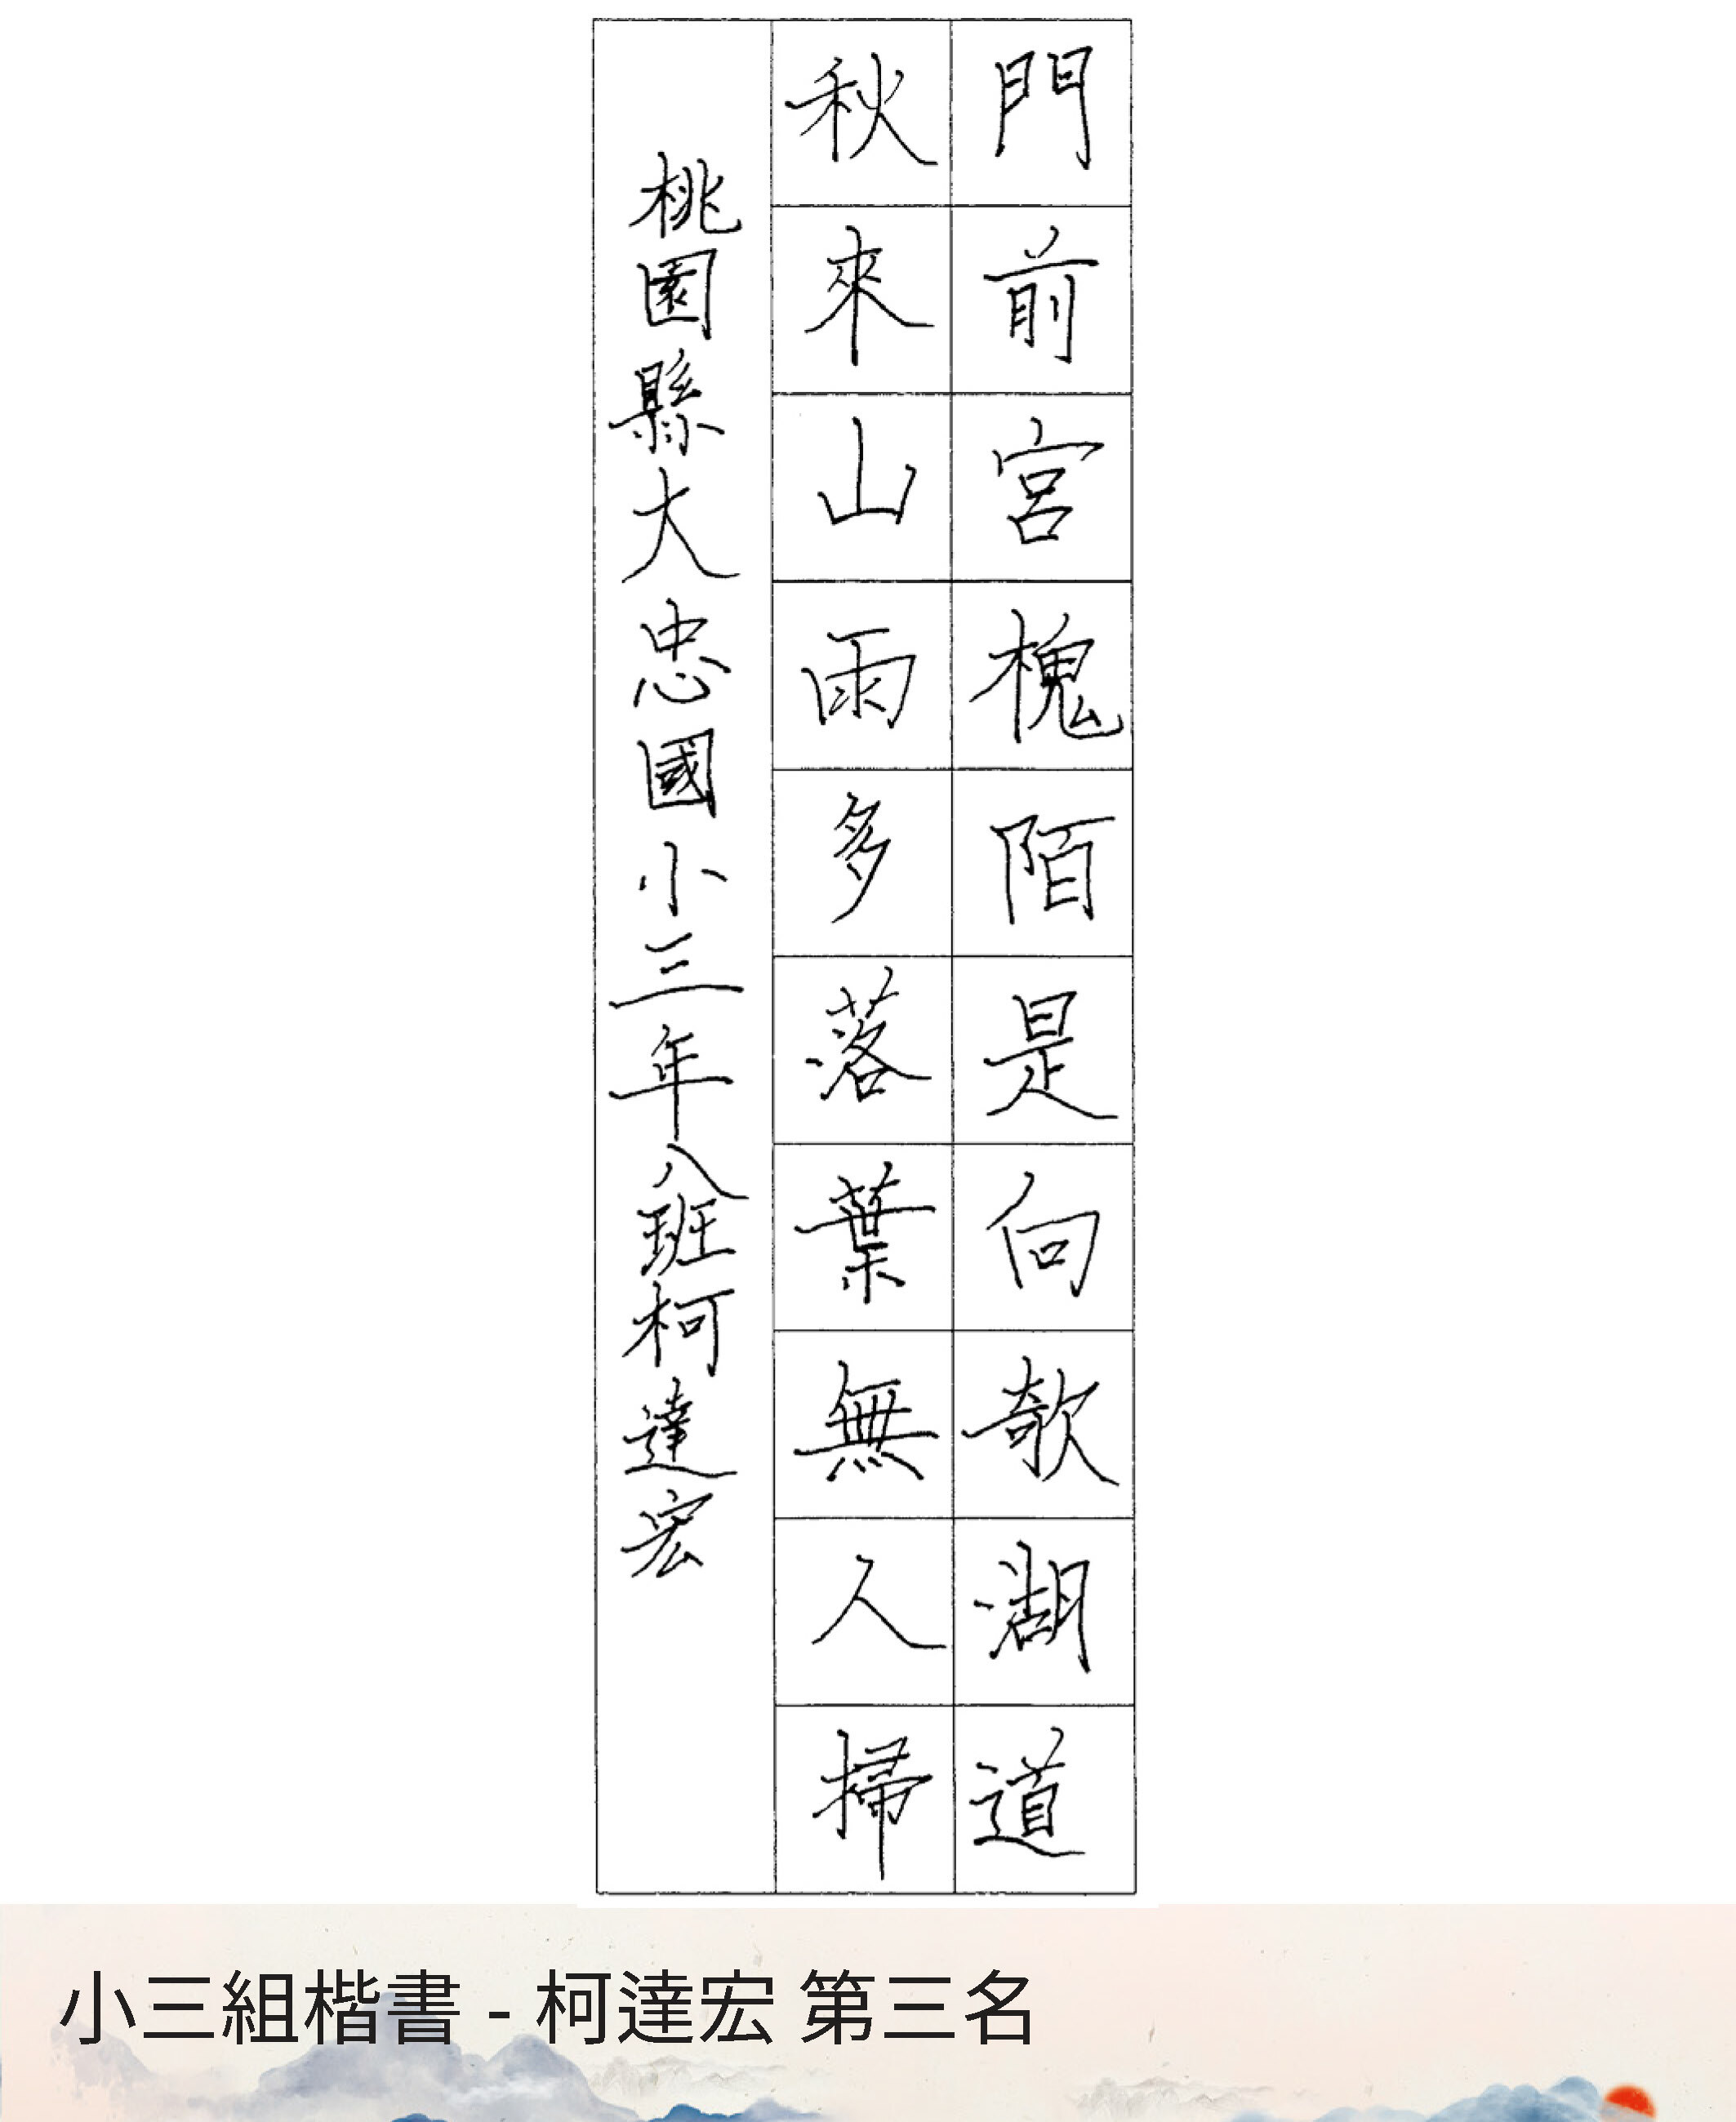 門前宮槐陌是向欹湖道
秋來山雨多落葉無人掃
桃園縣大忠國小三年八班柯達宏
小三組楷書 - 柯達宏 第三名